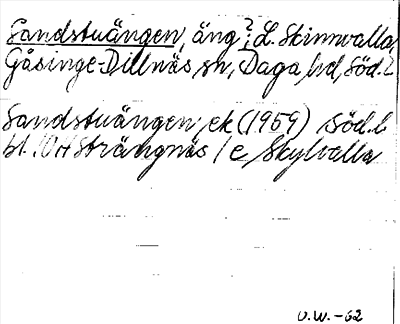 Sandstuängen, äng?; L. Skinnvalla,
Gåsinge-Dillnäs sn, Daga hd, Söd.l
Sandstuängen, ek (1959) Söd.l
bl. 10H Strängnäs / e Skylvalla
O.W.-62